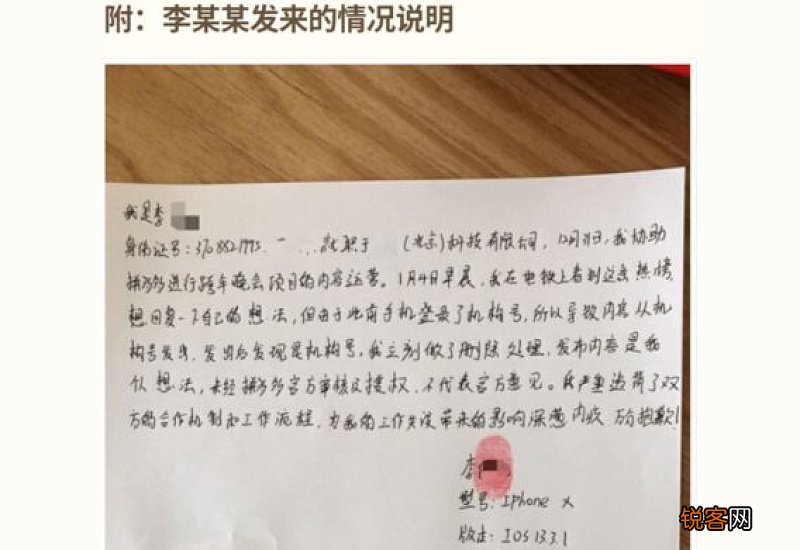 附：李某某发来的情况说明
我是李
身份证号：3708821993. 就职于 (北京)科技有限公司，12月31日，我协助
拼多多进行跨年晚会项目的内容运营。1月4日早晨，我在地铁上看到这条热榜，
想回复一下自己的想法，但由于此前手机登录了机构号，所以导致内容从机
构号发出，发出后发现是机构号，我立刻做了删除处理，发布内容是我
个人想法，未经拼多多官方审核及授权，不代表官方意见。我严重违背了双
方的合作机制和工作流程，为我的工作失误带来的影响深感内疚 万分抱歉！
李
型号：IPhone X
版本：IOS 13.3.1
锐客网